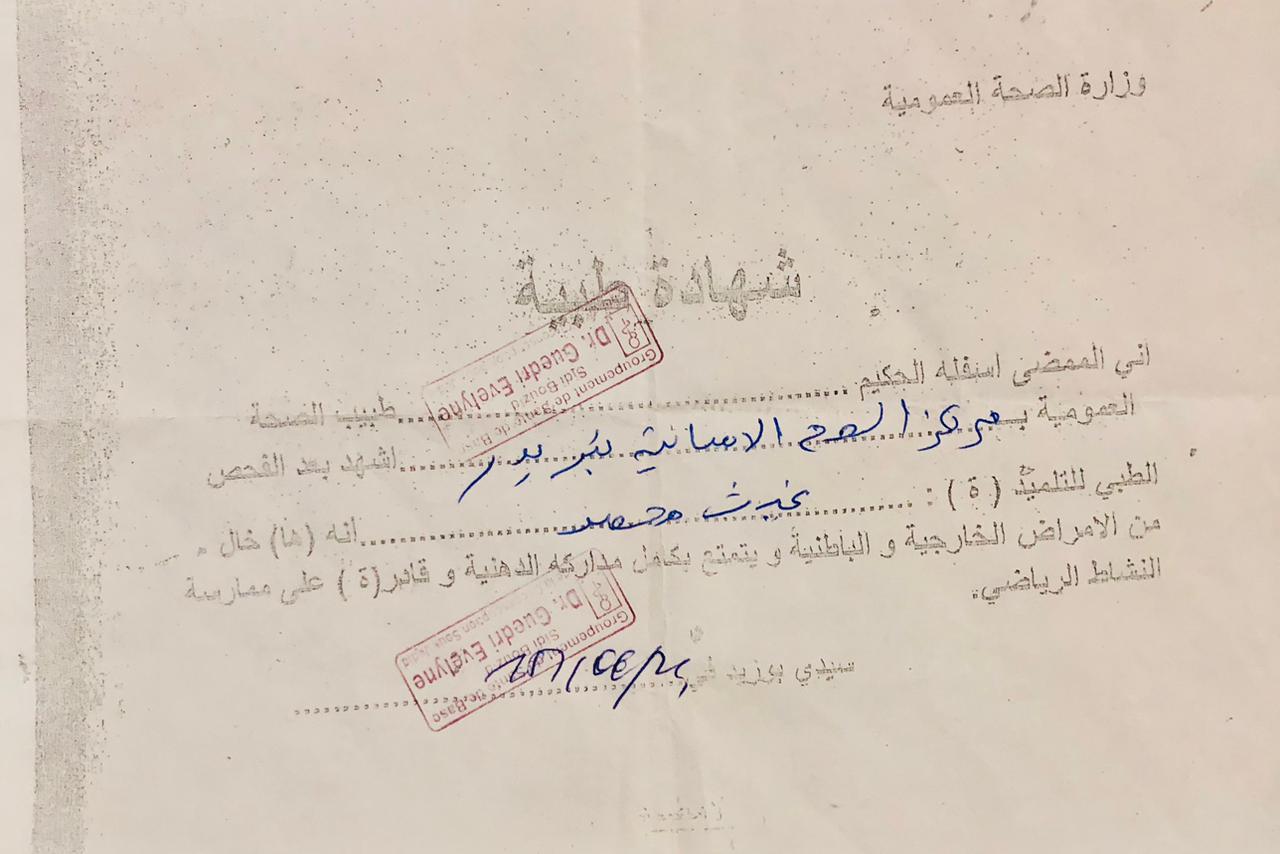 وزارة الصحة العمومية
شهادة طبية
اني الممضى اسفله الحكيم ........ طبيب الصحة
Groupement de Santé de Base
Sidi Bouzid
Dr. Guedri Evelyne
العمومية بـ مركز الصحة الاساسية ........ اشهد بعد الفحص
الطبي للتلميذ ( ة ) : ........ انه (ها) خال
من الامراض الخارجية و الباطنية و يتمتع بكامل مداركه الدهنية و قادر(ة ) على ممارسة
النشاط الرياضي.
سيدي بوزيد في ........
Groupement de Santé de Base
Sidi Bouzid
Dr. Guedri Evelyne
الامضاء